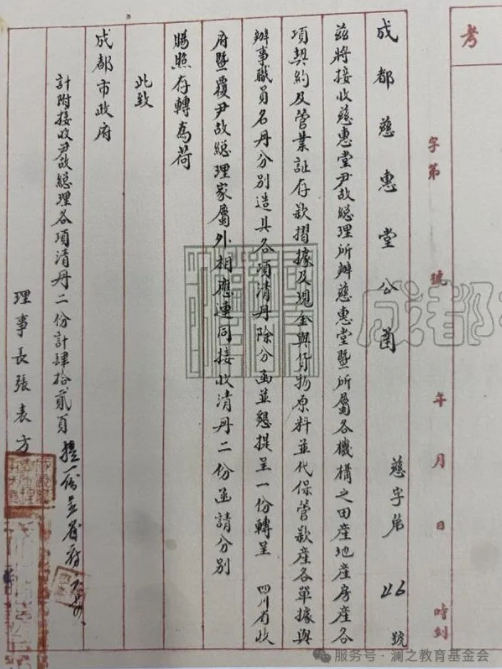 考
字第 號 年 月 日 時到
成都慈惠堂公函 慈字第 46 號
茲將接收慈惠堂尹故総理所辦慈惠堂暨所屬各機構之田産地産房産各
項契約及管業証存款摺據及現金與貨物原料並代保管款産各單據與
辦事職員名冊分別造具各項清冊除分函並懇提呈一份轉呈 四川省政
府暨覆尹故総理家屬外相應連同接收清冊二份函請分別
賜照存轉為荷
此致
成都市政府
計附接收尹故総理各項清冊二份計肆拾貳頁
理事長張表方
服务号·澜之教育基金会